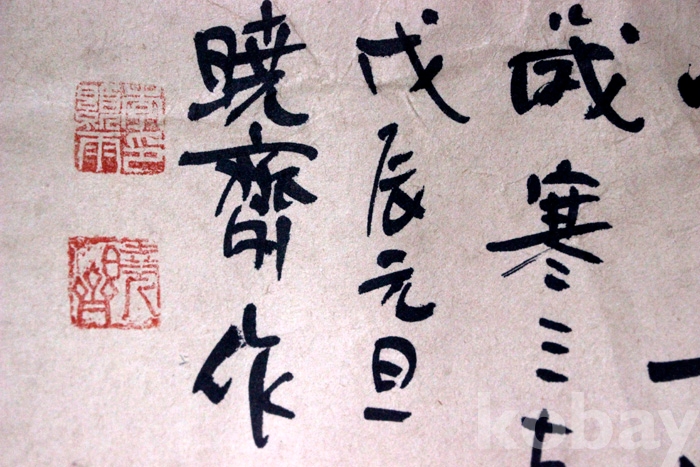 歲寒三
戊辰元旦
曉齋作
kobay